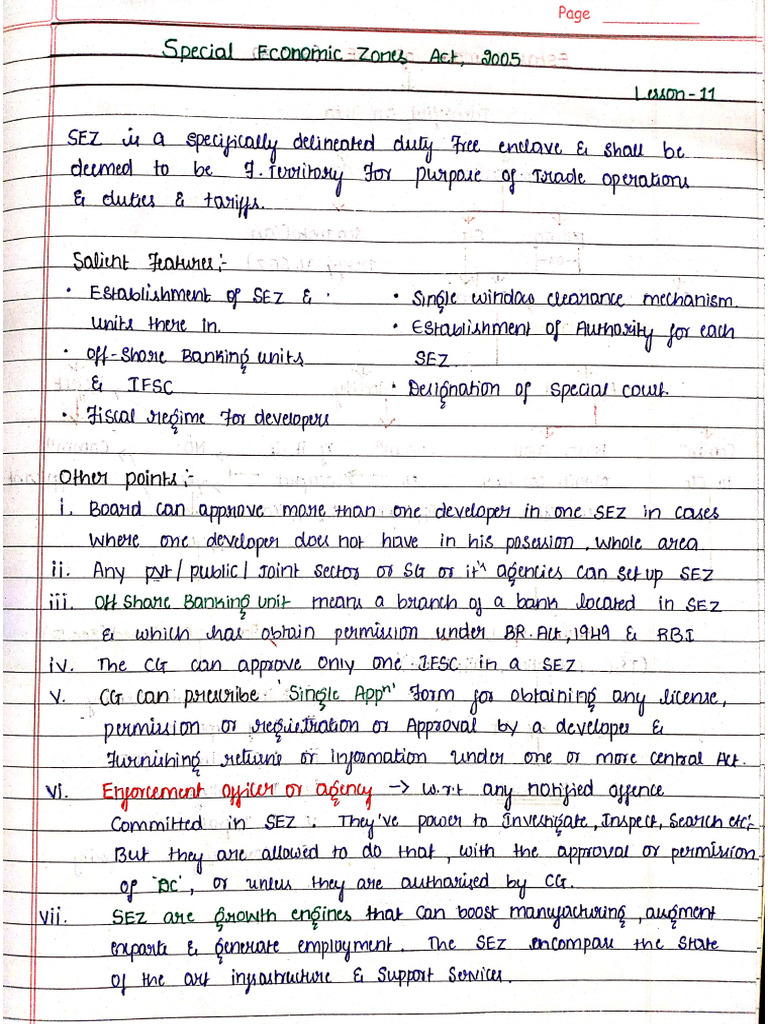 Page
Special Economic Zones Act, 2005
Lesson-11
SEZ is a specifically delineated duty free enclave & shall be
deemed to be F.Territory For purpose of Trade operations
& duties & tariffs.
Salient Features:-
• Establishment of SEZ &
units there in.
• Off-Share Banking units
& IFSC
• Fiscal regime For developers
• Single window clearance mechanism.
• Establishment of Authority for each
SEZ.
• Designation of special court.
Other points:-
i. Board can approve more than one developer in one SEZ in cases
where one developer does not have in his posession, whole area
ii. Any pvt/public/Joint Sector or SG or it's agencies can set up SEZ
iii. Off Share Banking unit means a branch of a bank located in SEZ
& which has obtain permission under BR.Act,1949 & RBI
iv. The CG can approve only one IFSC in a SEZ.
v. CG can prescribe 'Single Appn' Form for obtaining any license,
permission or registration or Approval by a developer &
Furnishing returns or information under one or more central Act.
vi. Enforcement officer or agency -> w.r.t any notified offence
Committed in SEZ. They've power to Investigate, Inspect, Search etc:-
But they are allowed to do that, with the approval or permission
of 'DC', or unless they are authorised by CG.
vii. SEZ are growth engines that can boost manufacturing, augment
exports & generate employment. The SEZ encompass the State
of the art infrastructure & Support Services.